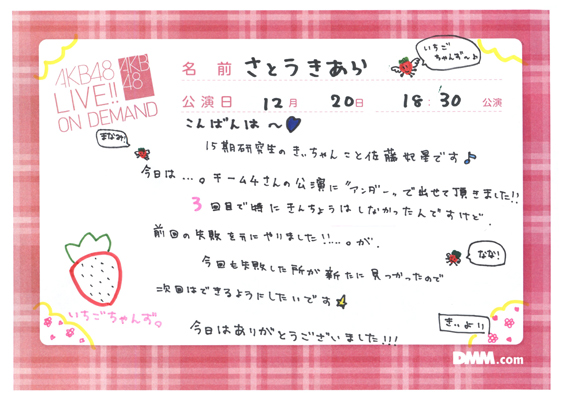 AKB48
LIVE!!
ON DEMAND
AKB
48
名前 さとうきあら
いちご
ちゃんず〜♪
公演日 12月 20日 18:30 公演
こんばんは〜
まなみ!
15期研究生のきぃちゃんこと佐藤妃星です♪
今日は…。チーム4さんの公演に"アンダー"で出せて頂きました!!
3回目で特にきんちょうはしなかったんですけど、
前回の失敗を元にやりました!!…。が、
なな!
今回も失敗した所が新たに見つかったので
次回はできるようにしたいです
いちごちゃんず。
きぃより
今日はありがとうございました!!!
DMM.com